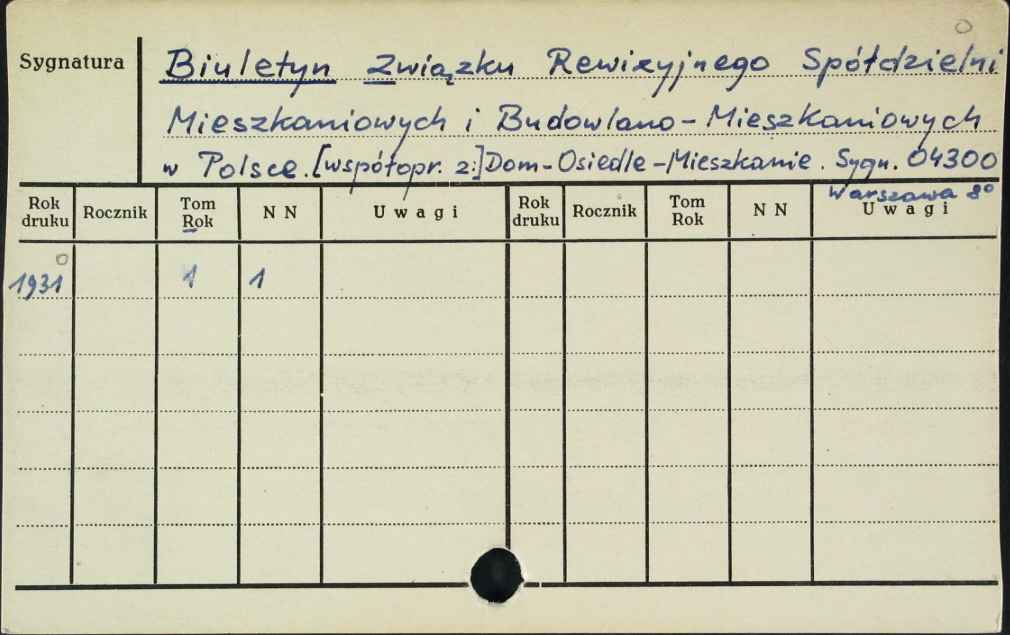 Sygnatura
Biuletyn Związku Rewizyjnego Spółdzielni
Mieszkaniowych i Budowlano-Mieszkaniowych
w Polsce. [współopr. z:] Dom-Osiedle-Mieszkanie. Sygn. 04300
Warszawa 8°
Rok druku Rocznik Tom Rok NN Uwagi Rok druku Rocznik Tom Rok NN Uwagi
1931 1 1